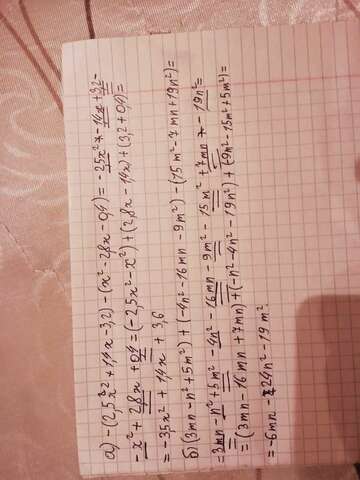 а) -(2,5x²+1,4x-3,2)-(x²-2,8x-0,4)=-2,5x²-1,4x+3,2-
-x²+2,8x+0,4=(-2,5x²-x²)+(2,8x-1,4x)+(3,2+0,4)=
=-3,5x²+1,4x+3,6
б) (3mn-n²+5m²)+(-4n²-16mn-9m²)-(15m²-7mn+19n²)=
=3mn-n²+5m²-4n²-16mn-9m²-15m²+7mn-19n²=
=(3mn-16mn+7mn)+(-n²-4n²-19n²)+(-9m²-15m²+5m²)=
=-6mn-24n²-19m²